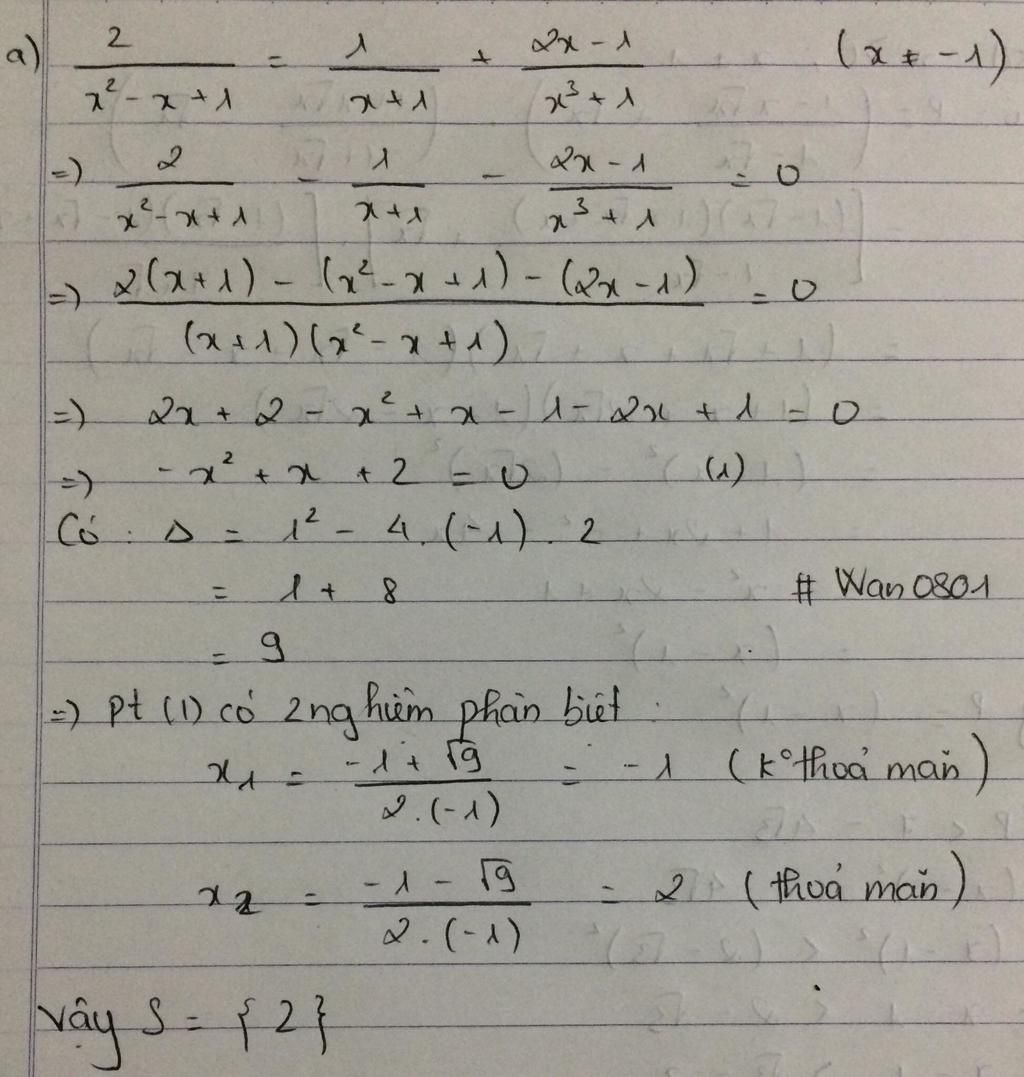 a) 2/(x² - x + 1) = 1/(x + 1) + (2x - 1)/(x³ + 1) (x ≠ -1)
=) 2/(x² - x + 1) - 1/(x + 1) - (2x - 1)/(x³ + 1) = 0
=) (2(x + 1) - (x² - x + 1) - (2x - 1))/((x + 1)(x² - x + 1)) = 0
=) 2x + 2 - x² + x - 1 - 2x + 1 = 0
=) -x² + x + 2 = 0 (1)
Có : Δ = 1² - 4.(-1).2
= 1 + 8 # Wan0801
= 9
=) Pt (1) có 2 nghiệm phân biệt :
x₁ = (-1 + √9)/(2.(-1)) = -1 (k° thoả mãn)
x₂ = (-1 - √9)/(2.(-1)) = 2 (thoả mãn)
Vậy S = {2}